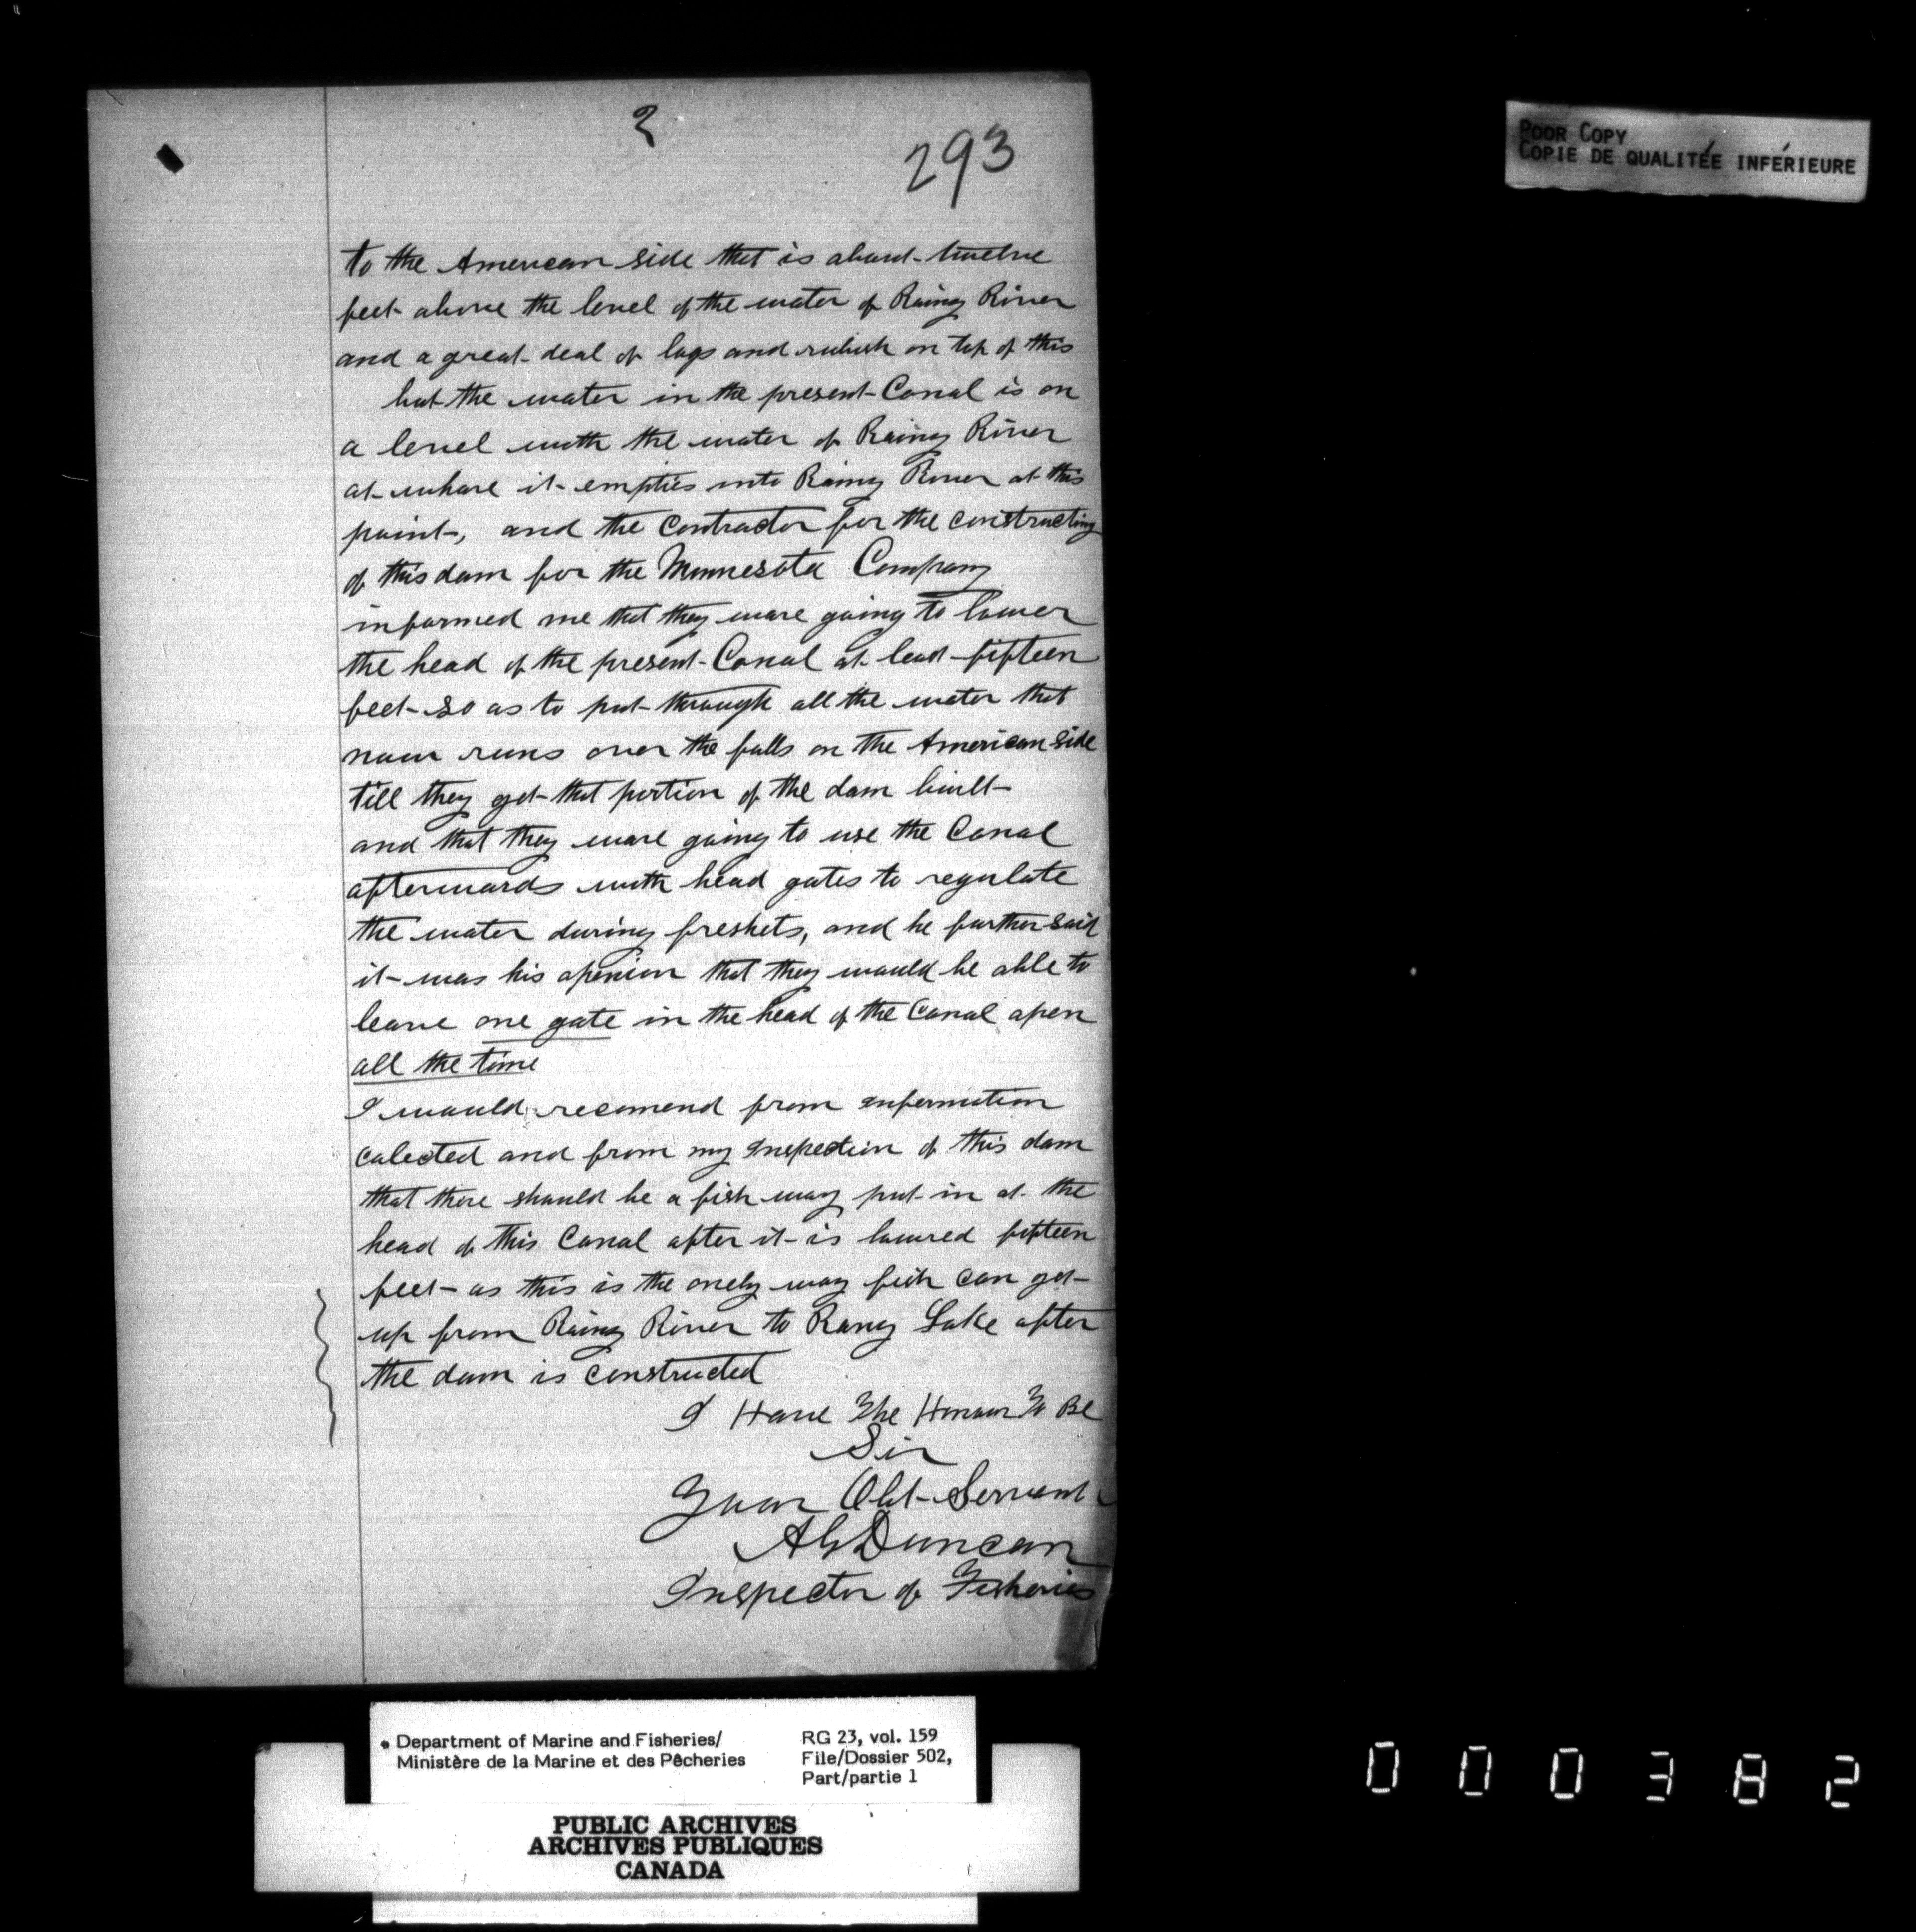 2
293
POOR COPY
COPIE DE QUALITÉE INFÉRIEURE
to the American side that is about twelve
feet above the level of the water of Rainy River
and a great deal of logs and rubish on top of this
but the water in the present Canal is on
a level with the water of Rainy River
at whare it empties into Rainy River at this
point, and the contractor for the constructing
of this dam for the Minnesota Company
informed me that they ware going to lower
the head of the present Canal at least fifteen
feet so as to put through all the water that
now runs over the falls on the American side
till they get that portion of the dam built
and that they ware going to use the Canal
afterwards with head gates to regulate
the water during freshets, and he further said
it was his openion that they would be able to
leave one gate in the head of the Canal open
all the time
I would recomend from information
colected and from my Inspection of this dam
that there should be a fish way put in at the
head of this Canal after it is lowred fifteen
feet as this is the onely way fish can get
up from Rainy River to Rany Lake after
the dam is constructed
I Have The Honour To Be
Sir
Your Obt Servant
AG Duncan
Inspector of Fisheries
Department of Marine and Fisheries/
Ministère de la Marine et des Pêcheries
RG 23, vol. 159
File/Dossier 502,
Part/partie 1
PUBLIC ARCHIVES
ARCHIVES PUBLIQUES
CANADA
000382